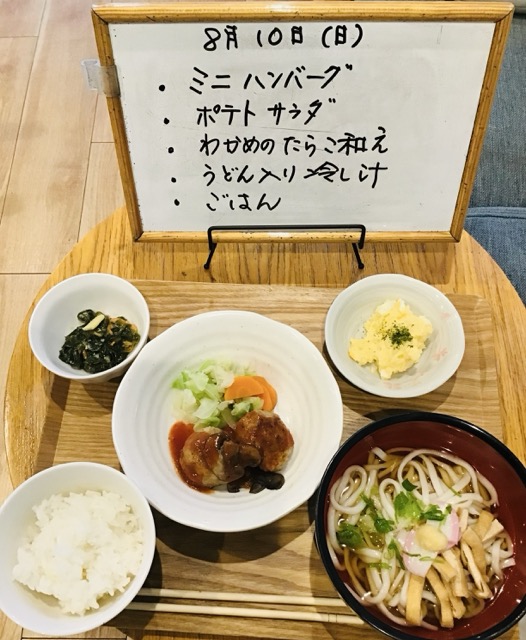 8月10日(日)
・ミニハンバーグ
・ポテトサラダ
・わかめのたらこ和え
・うどん入り冷し汁
・ごはん